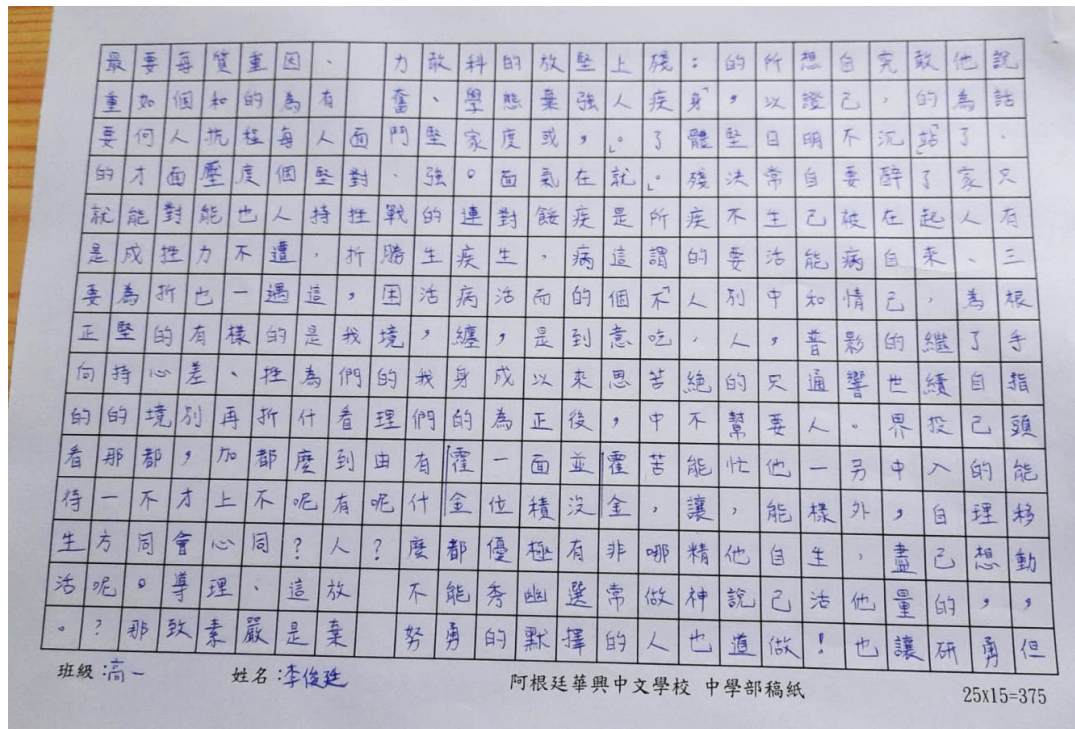 說話、只有三根手指頭能移動，但
他為了家人、為了自己的理想，勇
敢的站」了起來，繼續投入自己的研
究，沉醉在自己的世界中，盡量讓
自己不要被病情影響。另外，他也
想證明自己能知普通人一樣生活！
所以日常生活中，只要他能自己做
的，堅決不要別人的幫忙，他說道
：「身體殘疾的人，絕不能讓精神也
殘疾了」。所謂「不吃苦中苦，哪做人
上人。」就是這個意思，霍金非常的
堅強，在疾病到來後並沒有選擇
放棄或氣餒而是以正面積極幽默
的態度面對生活，成為一位優秀的
科學家。連疾病纏身的霍金都能勇
敢、堅強的生活，我們有什麼不努
力奮鬥、戰勝困境的理由呢？
面對挫折，我們看到有人放棄
、有人堅持、這是為什麼呢？這是
因為每個人遭遇的挫折都不同、嚴
重的程度也不一樣、再加上心理素
質和抗壓能力也有差別，才會導致
每個人面對挫折的心境都不同。那
要如何才能成為堅持的那一方呢？
最重要的就是要正向的看待生活。
班級：高一
姓名：李俊廷
阿根廷華興中文學校 中學部稿紙
25x15=375